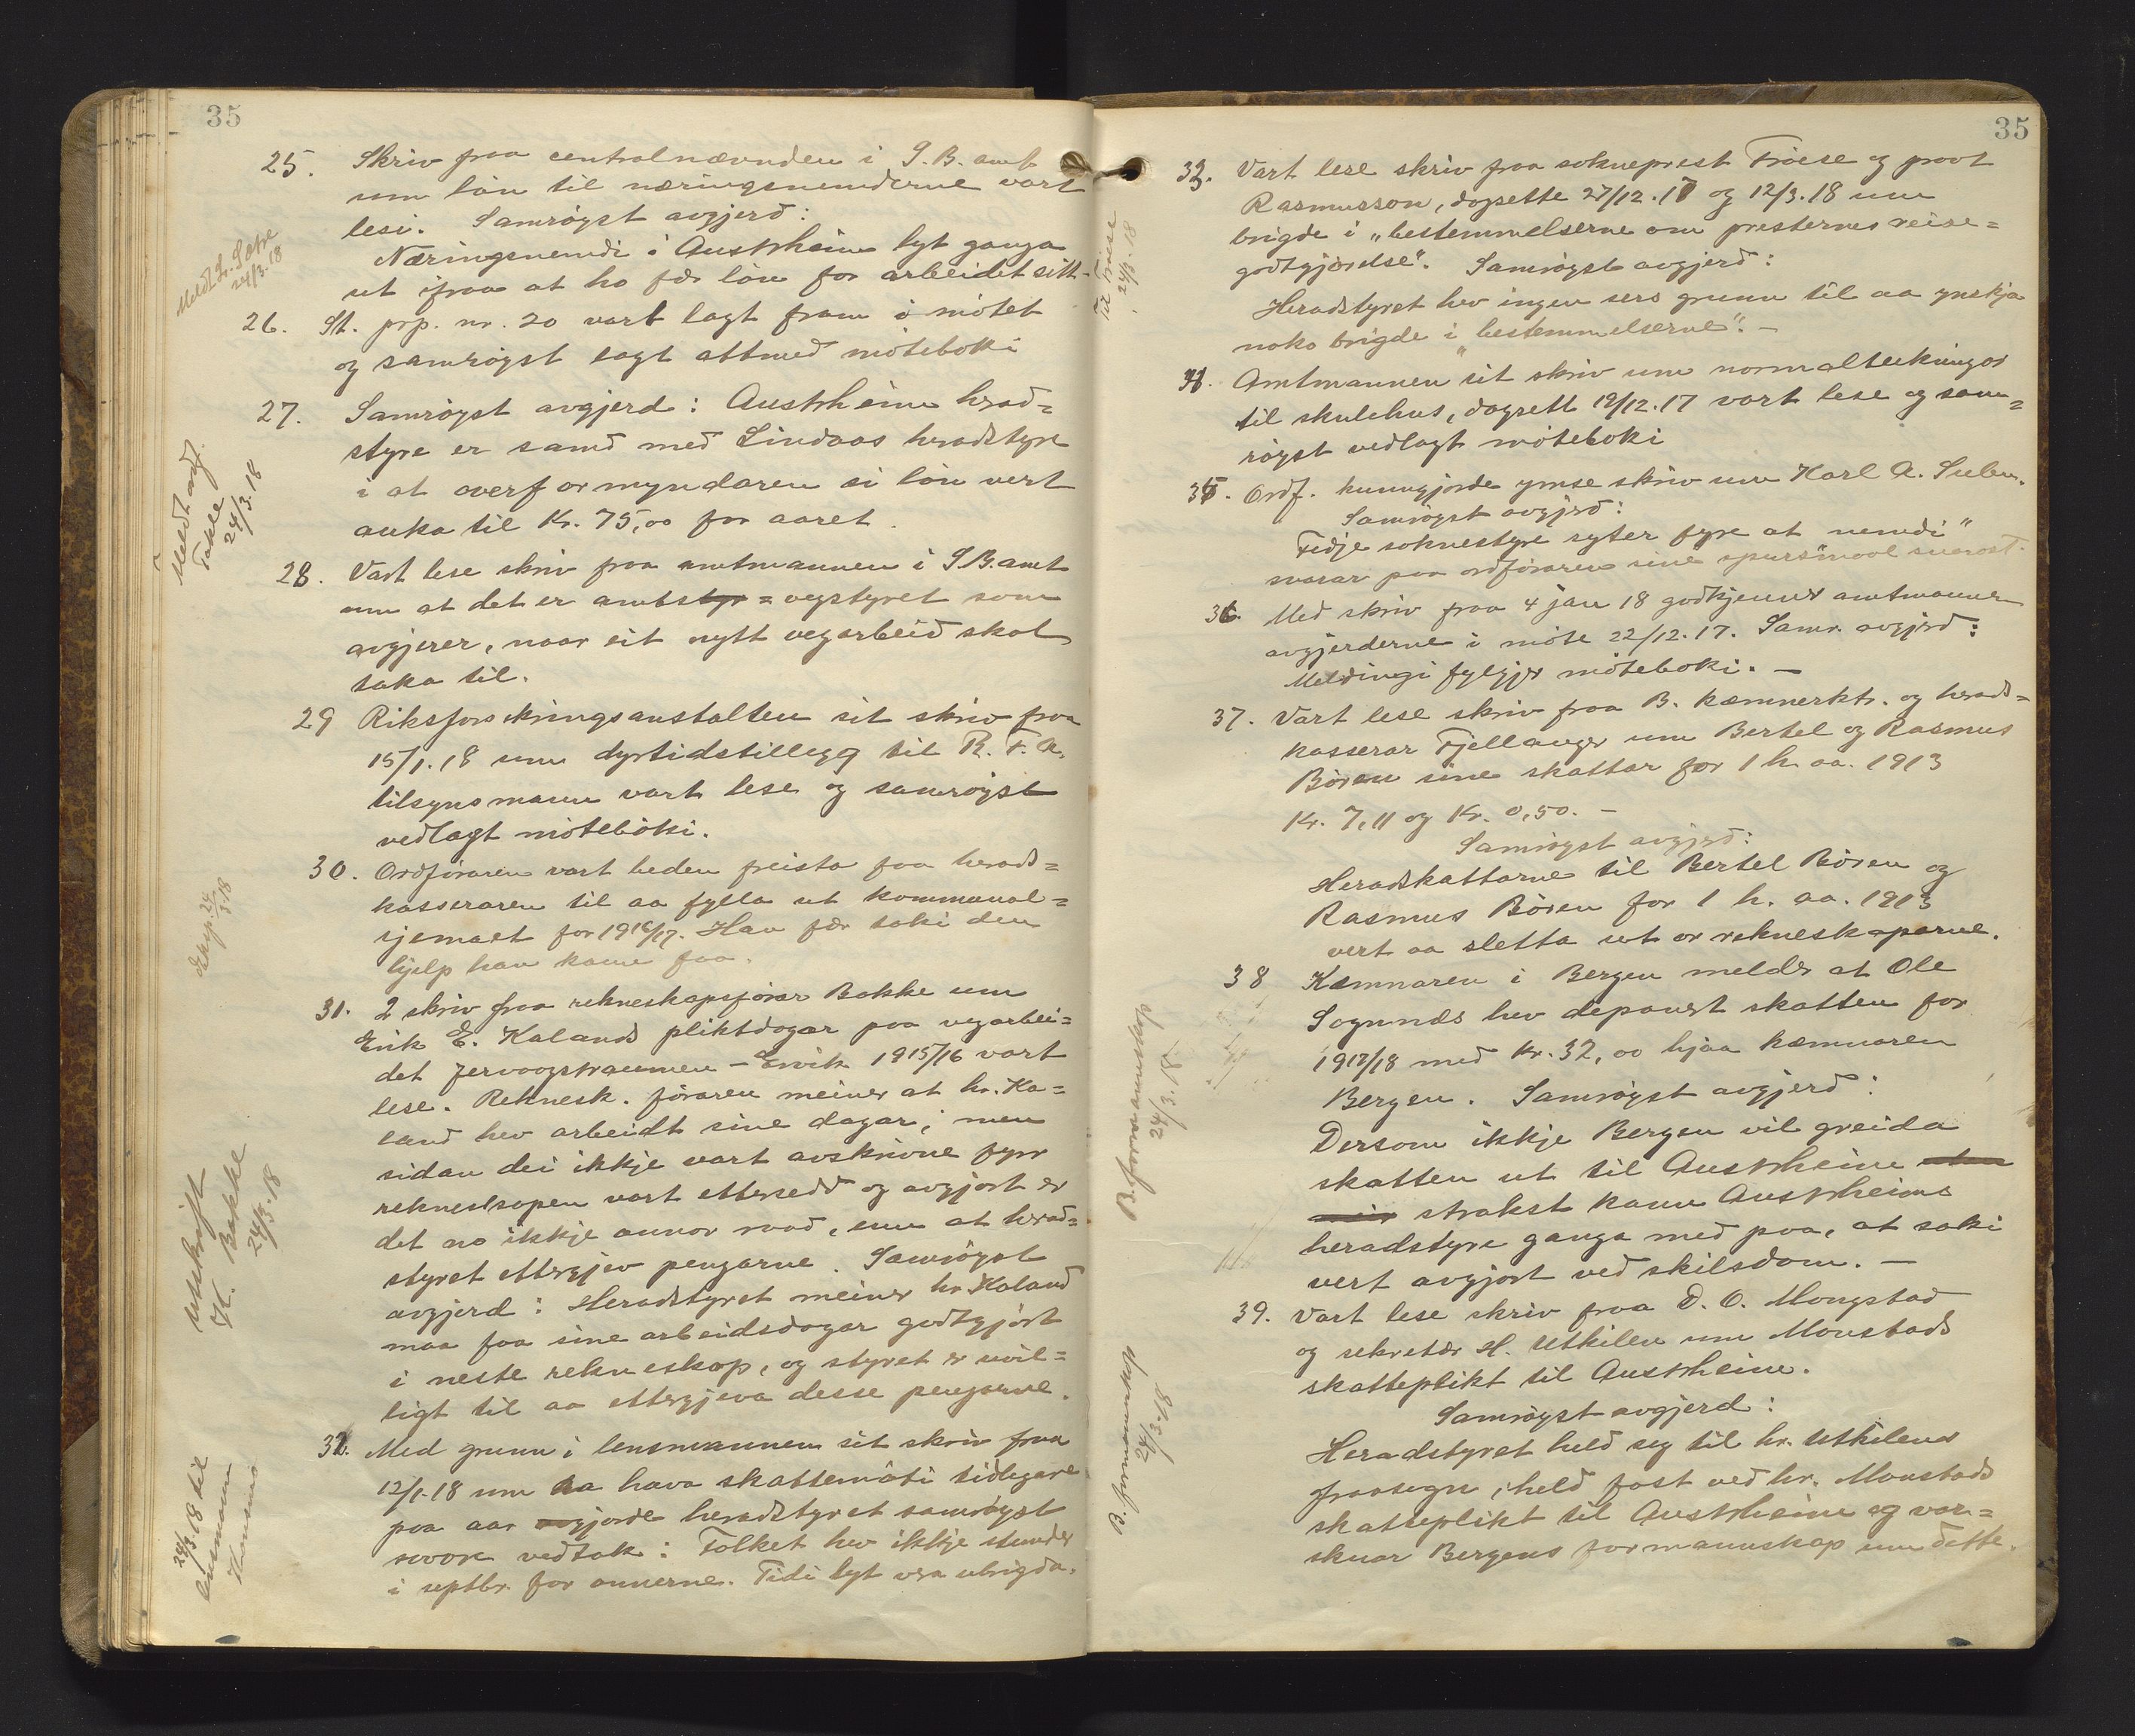 35
25. Skriv fraa centralnævnden i S. B. amt
um lön til næringsnemderne vart
lesi. Samröyst avgjerd:
Næringsnemdi i Austrheim lyt ganga
ut ifraa at ho fær lön for arbeidet sitt.
Meldt L. Sætre
24/3.18
26. St. prp. nr. 20 vart lagt fram i mötet
og samröyst lagt attmed möteboki
27. Samröyst avgjerd: Austrheim herad=
styre er samd med Lindaas heradstyre
i at overformyndaren si lön vert
auka til Kr. 75,00 for aaret.
Meldt ordf.
Takle
24/3.18
28. Vart lese skriv fraa amtmannen i S.B. amt
um at det er amtstyr = vegstyret som
avgjerer, naar eit nytt vegarbeid skal
taka til.
29 Riksforsikringsanstalten sit skriv fraa
15/1.18 um dyrtidstillegg til R. F. A.
tilsynsmann vart lese og samröyst
vedlagt möteboki.
30. Ordföraren vart beden freista faa herads=
kasseraren til aa fylla ut kommunal=
sjemaet for 1916/17. Han fær taki den
hjelp han kann faa.
31. 2 skriv fraa rekneskapsförar Bakke um
Erik E. Kalands pliktdagar paa vegarbei=
det Fervaagstraumen - Ervik 1915/16 vart
lese. Reknesk. föraren meiner at hr. Ka=
land hev arbeidt sine dagar; men
sidan dei ikkje vart avskrivne fyrr
rekneskapen vart ettersedd og avgjort er
det no ikkje annor raad, enn at herad=
styret ettergjev pengarne. Samröyst
avgjerd: Heradstyret meiner hr. Kaland
maa faa sine arbeidsdagar godtgjört
i neste rekneskap, og styret er uvil=
ligt til aa ettergjeva desse pengarne.
Utskrift
H. Bakke
24/3.18
32. Med grunn i lensmannen sit skriv fraa
12/1.18 um aa hava skattemöti tidlegare
paa aar gjorde heradstyret samröyst
sovore vedtak: Folket hev ikkje stunder
i septbr. for onnerne. Tidi lyt vera ubrigda.
24/3.18 til
lensmann
35
33. Vart lese skriv fraa sokneprest Fröise og provt
Rasmusson, dagsette 27/12.17 og 12/3.18 um
brigde i "bestemmelserne om presternes reise=
godtgjörelse". Samröyst avgjerd:
Heradstyret hev ingen sers grunn til aa ynskja
noko brigde i "bestemmelserne". -
Til Fröise
24/3.18
34. Amtmannen sit skriv um normalteikningar
til skulehus, dagsett 19/12.17 vart lese og sam=
röyst vedlagt möteboki
35. Ordf. kunngjorde ymse skriv um Karl A.
Samröyst avgjerd:
Fedje soknestyre syter fyre at nemdi
svarar paa ordföraren sine spursmaal snarast.
36. Med skriv fraa 4 jan 18 godkjenner amtmannen
avgjerderne i möte 22/12.17. Samr. avgjerd:
Meldingi fylgjer möteboki. -
37. Vart lese skriv fraa B. kæmnerktr. og herads=
kasserar Fjellanger um Bertel og Rasmus
Bören sine skattar for 1 h. aa. 1913
Kr. 7,11 og Kr. 0,50. -
Samröyst avgjerd:
Heradskattarne til Bertel Bören og
Rasmus Bören for 1 h. aa. 1913
vert aa sletta ut or rekneskaparne.
38 Kæmnaren i Bergen melder at Ole
Sognnes hev deponert skatten for
1917/18 med Kr. 32,00 hjaa kæmnaren
Bergen. Samröyst avgjerd:
Dersom ikkje Bergen vil greida
skatten ut til Austrheim
strakst kann Austrheims
heradstyre ganga med paa, at saki
vert avgjort ved skilsdom. -
B. formannskap
24/3.18
39. Vart lese skriv fraa D. O. Mongstad
og sekretær H. Utkilen um Monstads
skatteplikt til Austrheim.
Samröyst avgjerd:
Heradstyret held seg til hr. Utkilens
fraasegn, held fast ved hr. Monstads
skatteplikt til Austrheim og var=
skuar Bergens formannskap um dette.
B. formannskap
24/3.18